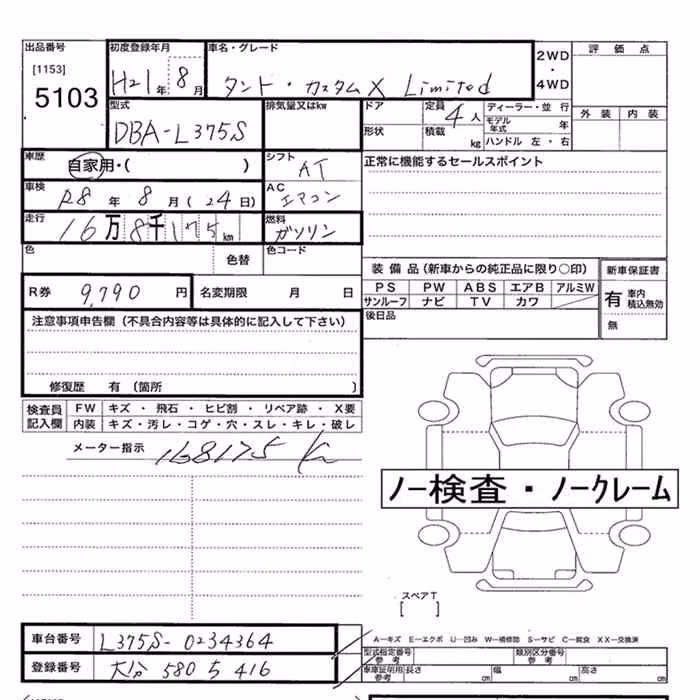 出品番号 初度登録年月 車名・グレード 2WD・4WD 評価点
[1153]
5103 H21年 8月 タント・カスタムX Limited
型式 排気量又はkw ドア 定員 4人 ディーラー・並行 外装 内装
DBA-L375S 形状 積載 kg モデル年式 年
ハンドル 左・右
車歴 自家用・( ) シフト AT 正常に機能するセールスポイント
車検 R8年 8月(24日) AC エアコン
走行 16万8千175km 燃料 ガソリン
色 色替 色コード
装備品(新車からの純正品に限り○印) 新車保証書
R券 9,790円 名変期限 月 日 PS PW ABS エアB アルミW 有 車内積込無効
サンルーフ ナビ TV カワ
注意事項申告欄(不具合内容等は具体的に記入して下さい) 後日品 無
修復歴 有〔箇所 〕
検査員記入欄 FW キズ・飛石・ヒビ割・リペア跡・X要
内装 キズ・汚レ・コゲ・穴・スレ・キレ・破レ
メーター指示 168175 K
ノー検査・ノークレーム
スペアT
[ ]
車台番号 L375S-0234364 A－キズ E－エクボ U－凹み W－補修跡 S－サビ C－腐食 XX－交換済
型式指定番号 参考 類別区分番号 参考
登録番号 大分 580 ち 416 車庫証明用 参考 長さ cm 幅 cm 高さ cm